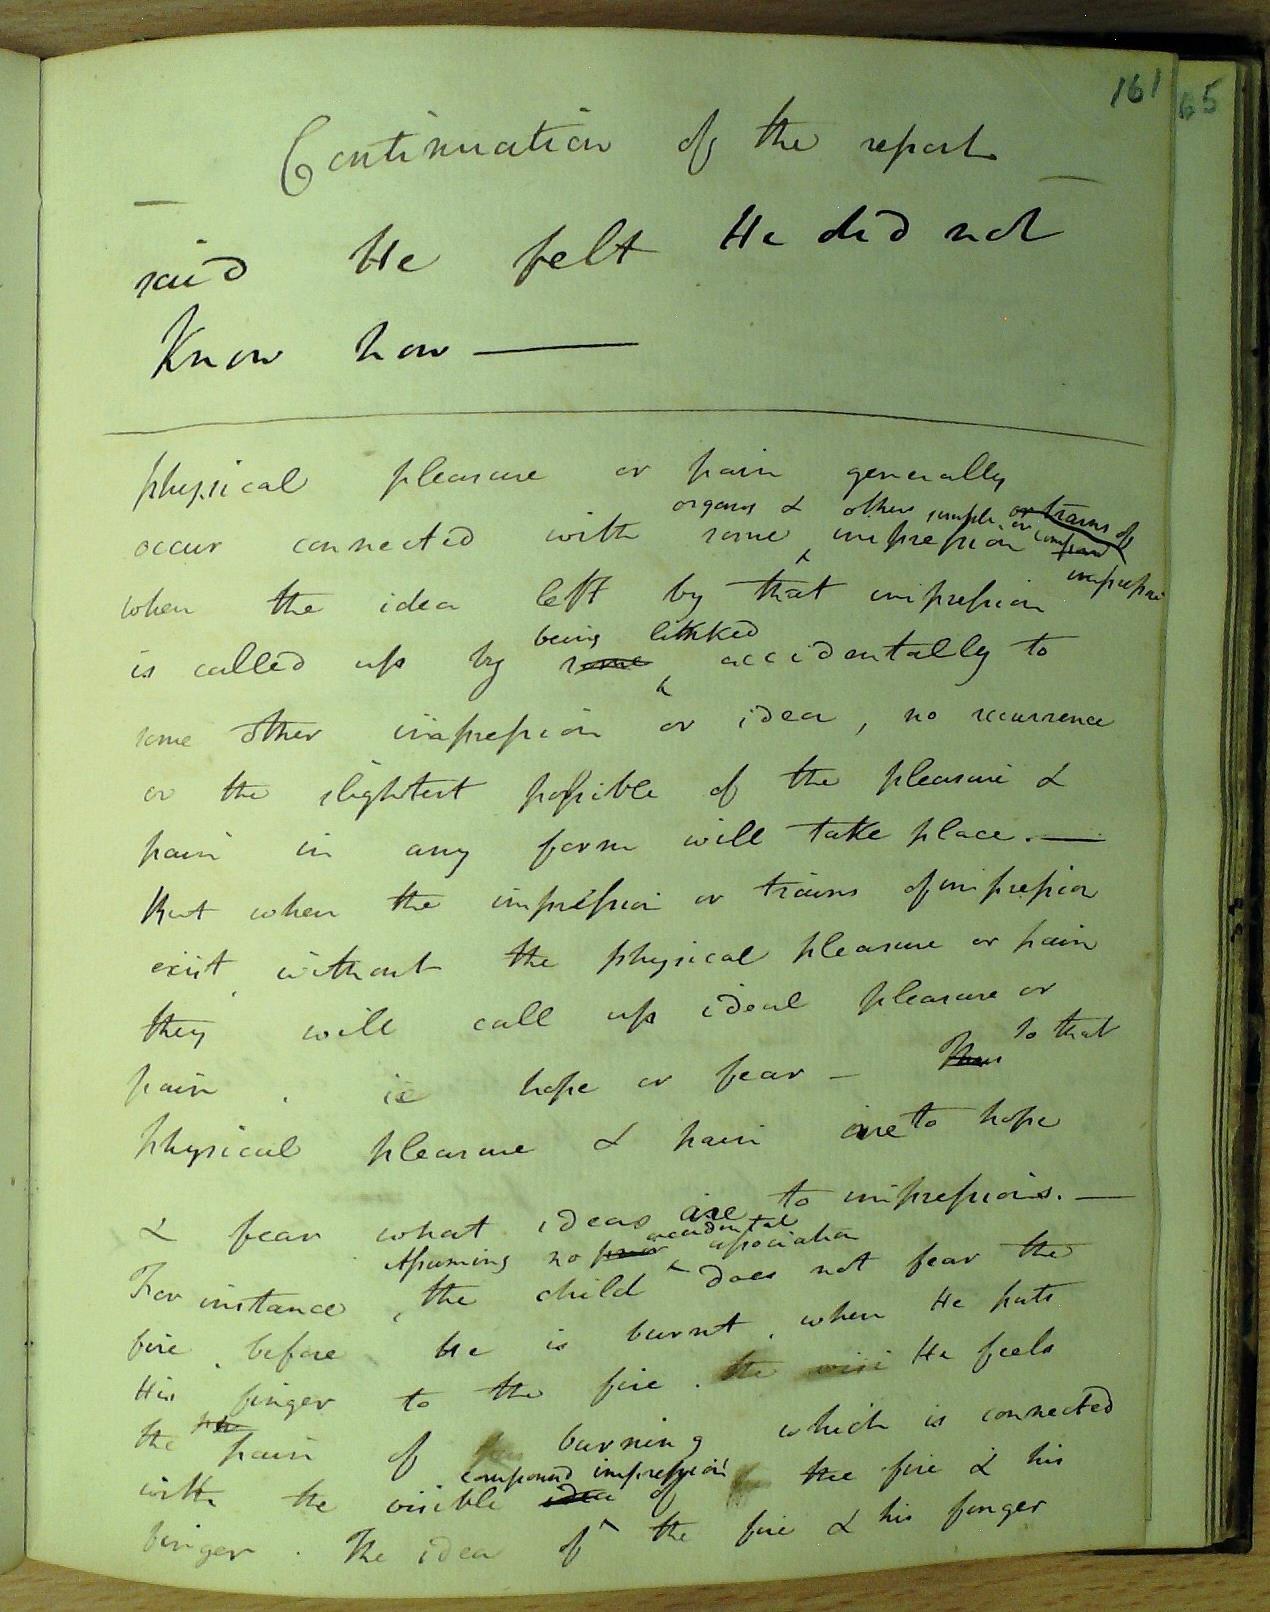 161
65
Continuation of the report
said He felt He did not
Know how —
physical pleasure or pain generally
organs & other simple or trains of
occur connected with some impression or compound
impression
when the idea left by that impression
being linked
is called up by some accidentally to
some other impression or idea, no recurrence
or the slightest possible of the pleasure &
pain in any form will take place. —
But when the impression or trains of impression
exist, without the physical pleasure or pain
they will call up ideal pleasure or
pain, ie hope or fear — Thus so that
physical pleasure & pain are to hope
& fear what ideas are to impressions. —
Assuming no prior accidental association
For instance, the child does not fear the
fire, before He is burnt, when He puts
His finger to the fire. the visi He feels
the pain of burning which is connected
compound impression
with the visible idea of the fire & his
finger. The idea of the fire & his finger